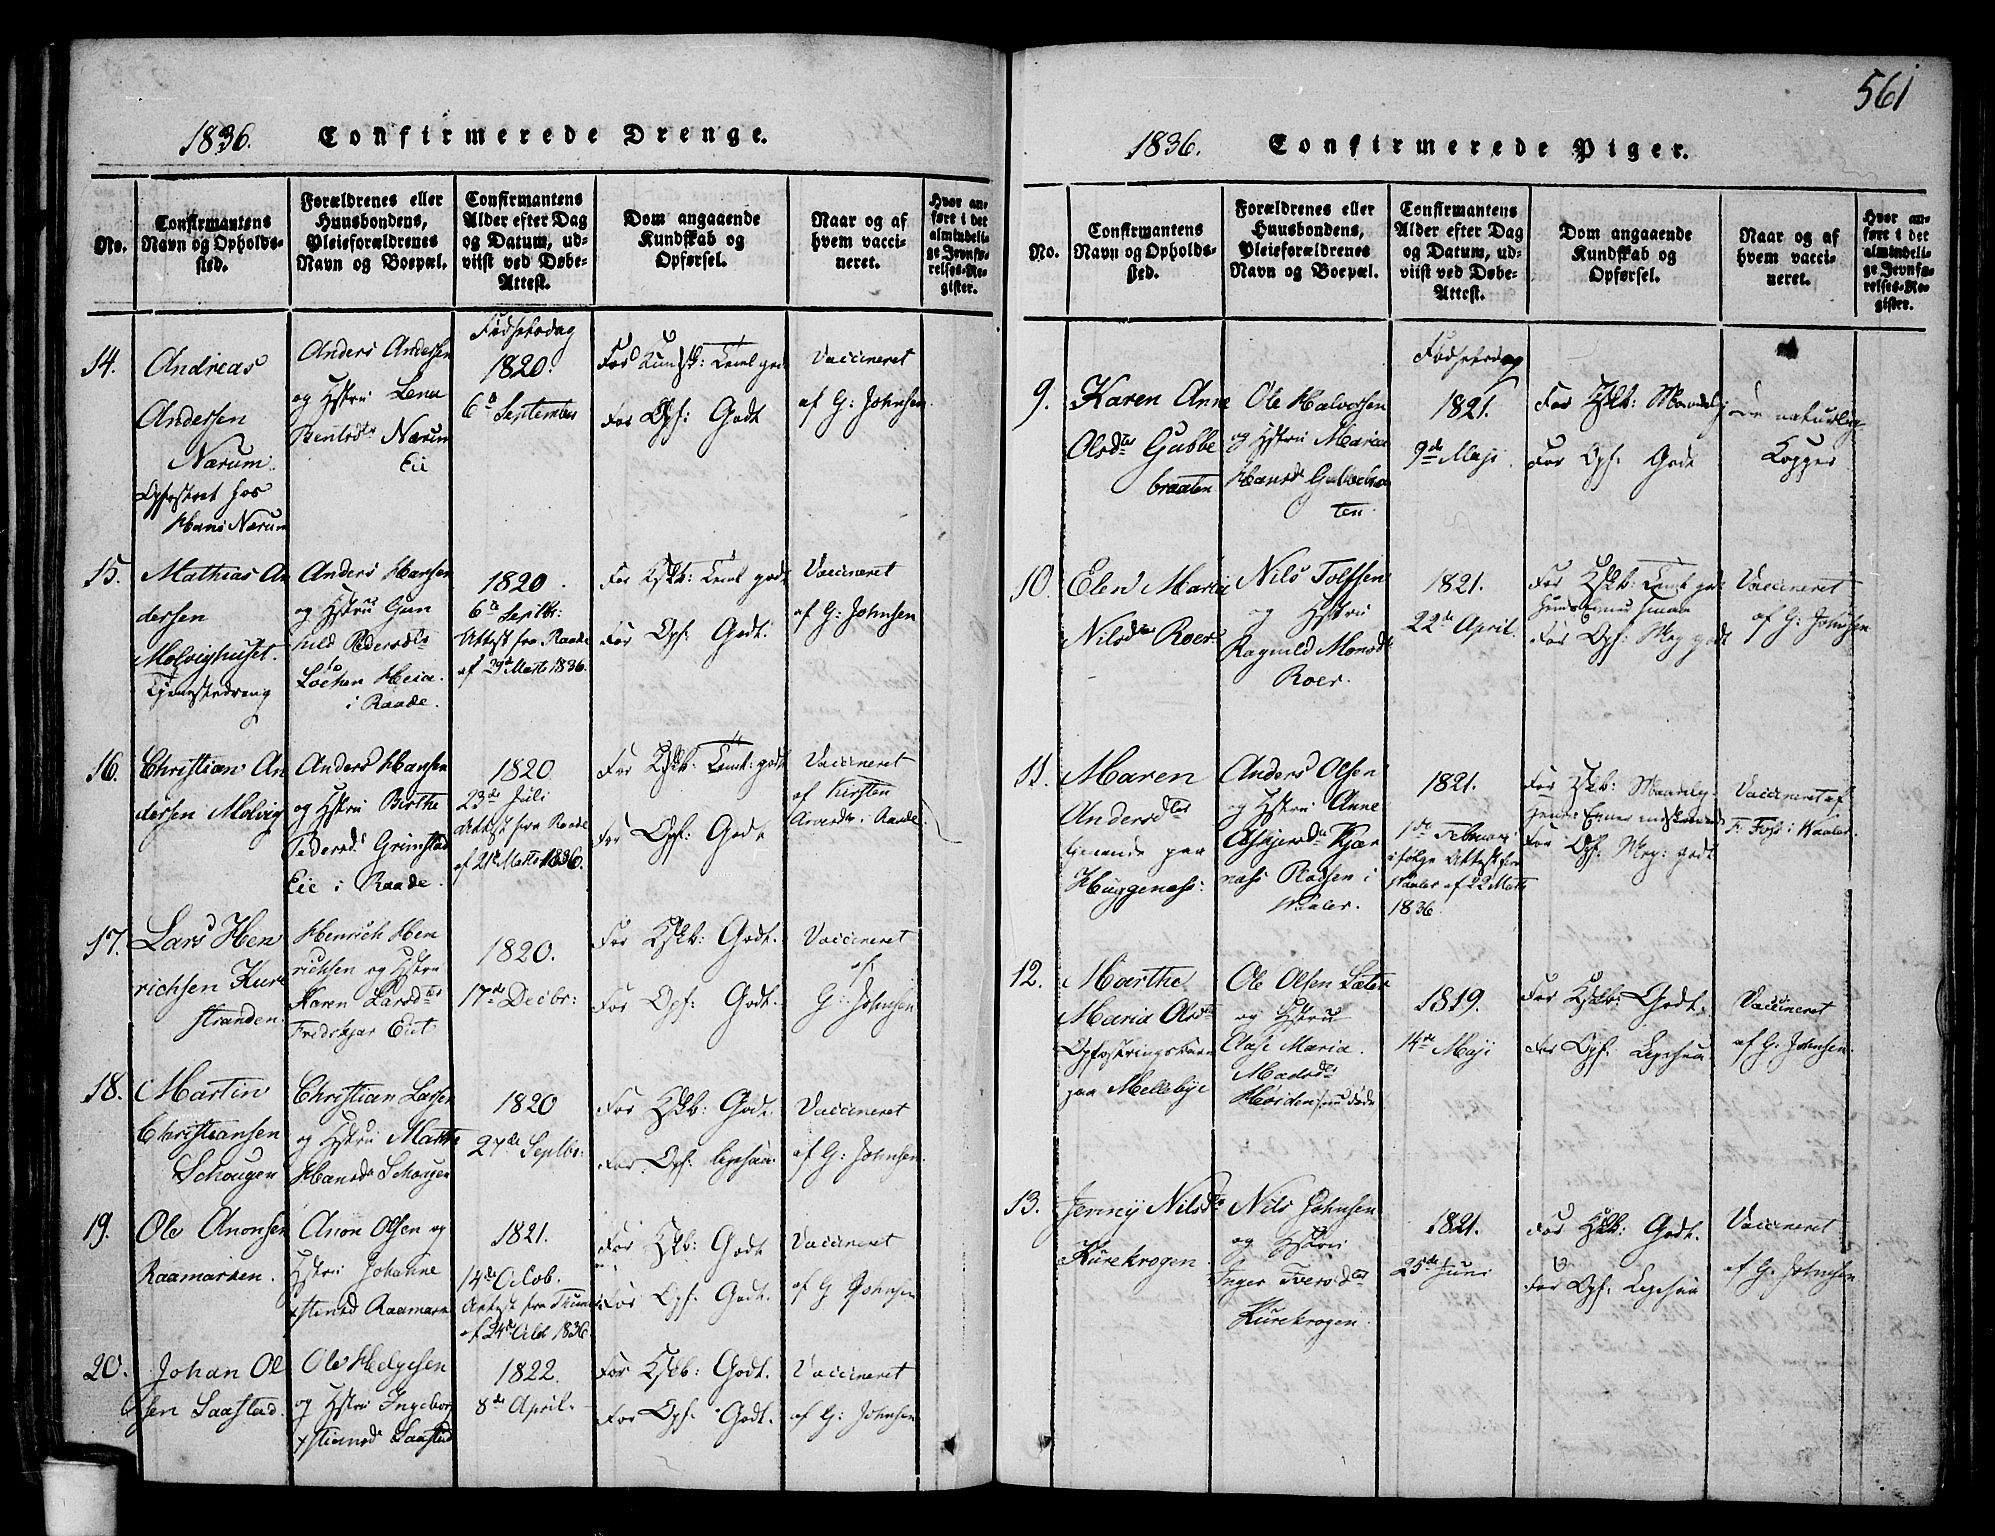 1836. Confirmerede Drenge.
No.
Confirmantens
Navn og Opholds-
sted.
Forældrenes eller
Huusbondens,
Pleieforældrenes
Navn og Boepæl.
Confirmantens
Alder efter Dag
og Datum, ud-
viist ved Døbe-
Attest.
Dom angaaende
Kundskab og
Opførsel.
Naar og af
hvem vacci-
neret.
Hvor an-
føre i det
almindeli-
ge Jevnfø-
relses-Re-
gister.
14.
Andreas
Andersen
Narum.
Opfostret hos
Hans Narum
Anders Andersen
og Hstru Lena
Bentsdtr Narum
Eie
Fødselsdag
1820.
6te September
For Kundsk: Teml. god
For Opf: Godt
Vaccineret
af G: Johnsen.
15.
Mathias An
dersen
Molvighuset.
Tjenestedreng
Anders Hansen
og Hstrus Gun
hild Pedersdtr
Løchen Heia.
i Raade.
1820.
6te Septbr:
Attest fra Raade
af 29de Marts 1836.
For Kskb: Teml godt
For Opf: Godt.
Vaccineret
af G: Johnsen
16.
Christian An
dersen Molvig
Anders Hansen
og Hstru Birthe
Pedersd Grimstad
Eie i Raade.
1820.
23de Juli
Attest fra Raade
af 21de Marts 1836.
For Kskb: Teml: godt
For Opf: Godt
Vaccineret
af Kirsten
i Raade.
17.
Lars Hen
richsen Kure
stranden.
Henrich Hen
richsen og Hstru
Karen Larsdtr
Fridskjar Eiet.
1820.
17de Decbr:
For Kskb: Godt.
For Opf: Godt.
Vaccineret
af
G: Johnsen
18.
Martin
Christiansen
Schougen
Christian Larsen
og Hstru Marthe
Hansdr Schougen
1820
27de Septbr:
For Kskb: Godt.
For Opf: ligesaa.
Vaccineret
af G: Johnsen.
19.
Ole Anonsen
Raamarken.
Anon Olsen og
Hstru Johanne
xstensd Raamark
1821.
14de Octob.
Attest fra Thune
af 24de Octb 1836
For Kskb: Godt
For Opf: Godt.
Vaccineret
af G Johnsen
20.
Johan Ol
sen Saastad.
Ole Helgesen
og Hstru Ingebor
xstiansd Saastad
1822.
8de April.
For Kskb: Godt.
For Opf: Godt.
Vaccineret
af G: Johnsen
561
1836. Confirmerede Piger.
No.
Confirmantens
Navn og Opholds-
sted.
Forældrenes eller
Huusbondens,
Pleieforældrenes
Navn og Boepæl.
Confirmantens
Alder efter Dag
og Datum, ud-
viist ved Døbe-
Attest.
Dom angaaende
Kundskab og
Opførsel.
Naar og af
hvem vacci-
neret.
Hvor an-
føre i det
almindeli-
ge Jevnfø-
relses-Re-
gister.
9.
Karen Anne
Olsdtr Gubbe
braaten
Ole Halvorsen
og Hstru Maria
Hansd Gubbebraa
ten.
Fødselsdag
1821.
9de Maji.
For Kskb: Maadelig
For Opf: Godt
De naturlige
Kopper
10.
Elen Maria
Nilsdtr Roer
Nils Tolfsen
og Hstru
Ragnild Monsdr
Roer.
1821.
22de April.
For Kskb: Teml. god
hendes Evner smaa
For Opf: Meg godt
Vaccineret
af G: Johnsen
11.
Maren
Andersdtr
tjenende paa
Huggenæs:
Anders Olsen
og Hstru Anne
Asbjørnsdr Kjær
næss Rødsen i
Vaaler.
1821.
1de Februar
ifølge Attest fra
Vaaler af 22 Marts
1836.
For Kskb: Maadelig
hendes Evner indskrænkede
For Opf: Meg: godt
Vaccineret af
F. Foss i Vaaler.
12.
Marthe
Maria Olsdtr
Opfostringsbarn
paa Mellebye
Ole Olsen Sæter
og Hstru
Else Maria.
Madsdr
Høiden nu døde
1819.
14de Maji
For Kskb: Godt.
For Opf: Ligesaa.
Vaccineret
af G. Johnsen.
13.
Jenny Nilsdtr
Kurekrogen
Nils Johnsen
og Hstru
Inger Iversdtr
Kurekrogen.
1821.
25de Juni
For Kskb: Godt.
For Opf: Ligesaa
Vaccineret
af G: Johnsen